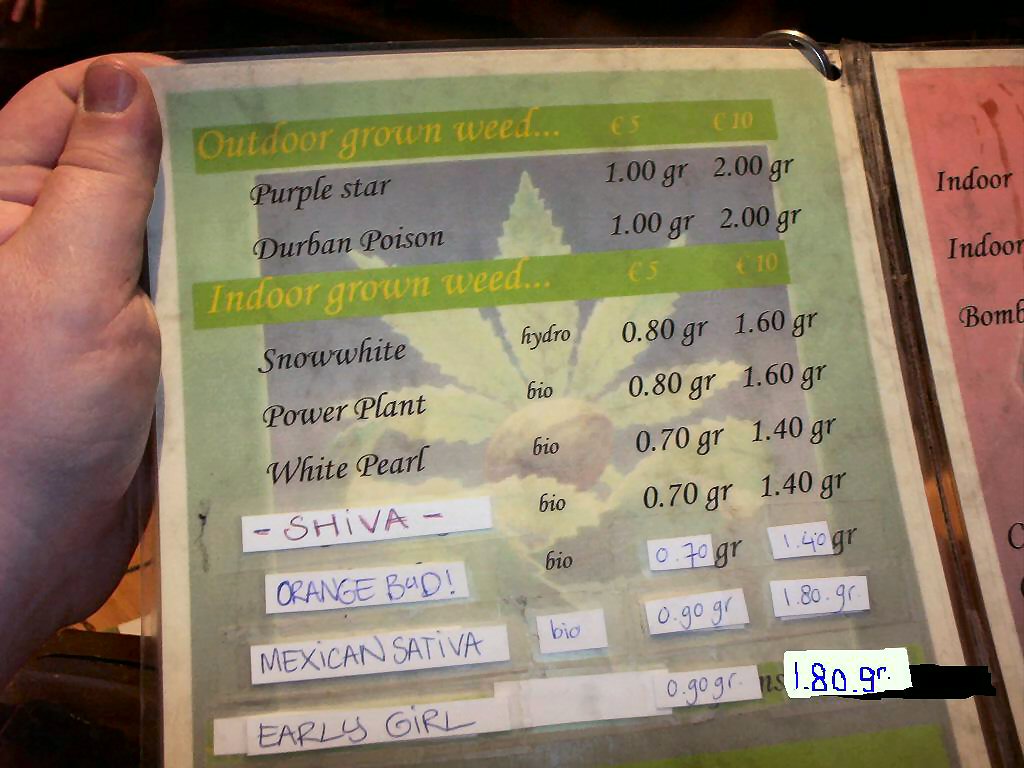 Outdoor grown weed... €5 €10
Purple star 1.00 gr 2.00 gr
Durban Poison 1.00 gr 2.00 gr
Indoor grown weed... €5 €10
Snowwhite hydro 0.80 gr 1.60 gr
Power Plant bio 0.80 gr 1.60 gr
White Pearl bio 0.70 gr 1.40 gr
- SHIVA - bio 0.70 gr 1.40 gr
ORANGE BUD! bio 0.70 gr 1.40 gr
MEXICAN SATIVA bio 0.90 gr 1.80.gr.
EARLY GIRL 0.90gr. 1.80.gr.
Indoor
Indoor
Bomb